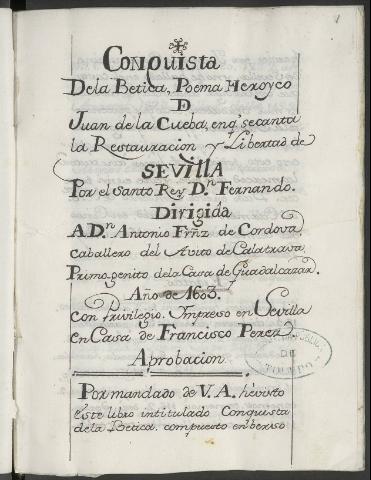 1
Conquista
Dela Betica, Poema Heroyco
D
Juan de la Cueba, enq̃ se canta
la Restauracion y Libertad de
SEVILLA
Por el Santo Rey D.n Fernando.
Dirigida
A D.n Antonio Frñz de Cordova,
caballero del Avito de Calatrava,
Primogenito dela Casa de Guadalcazar.
Año de 1603.
con Privilegio. Impreso en Sevilla
en Casa de Francisco Perez
Aprobacion
Por mandado de V.A. hevisto
este libro intitulado Conquista
dela Betica. compuesto enberso
DE
TOLEDO